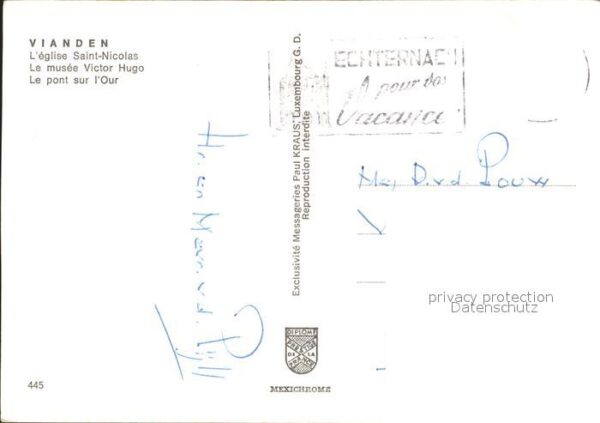 VIANDEN
L'église Saint-Nicolas
Le musée Victor Hugo
Le pont sur l'Our
ECHTERNACH
pour vos
Vacances
Exclusivité Messageries Paul KRAUS, Luxembourg G. D.
Reproduction interdite
Hr. en Mevr. v.d.
D.v.d. Pouw
privacy protection
Datenschutz
DIPLOME
PRESTIGE
DE LA
FRANCE
MEXICHROME
445